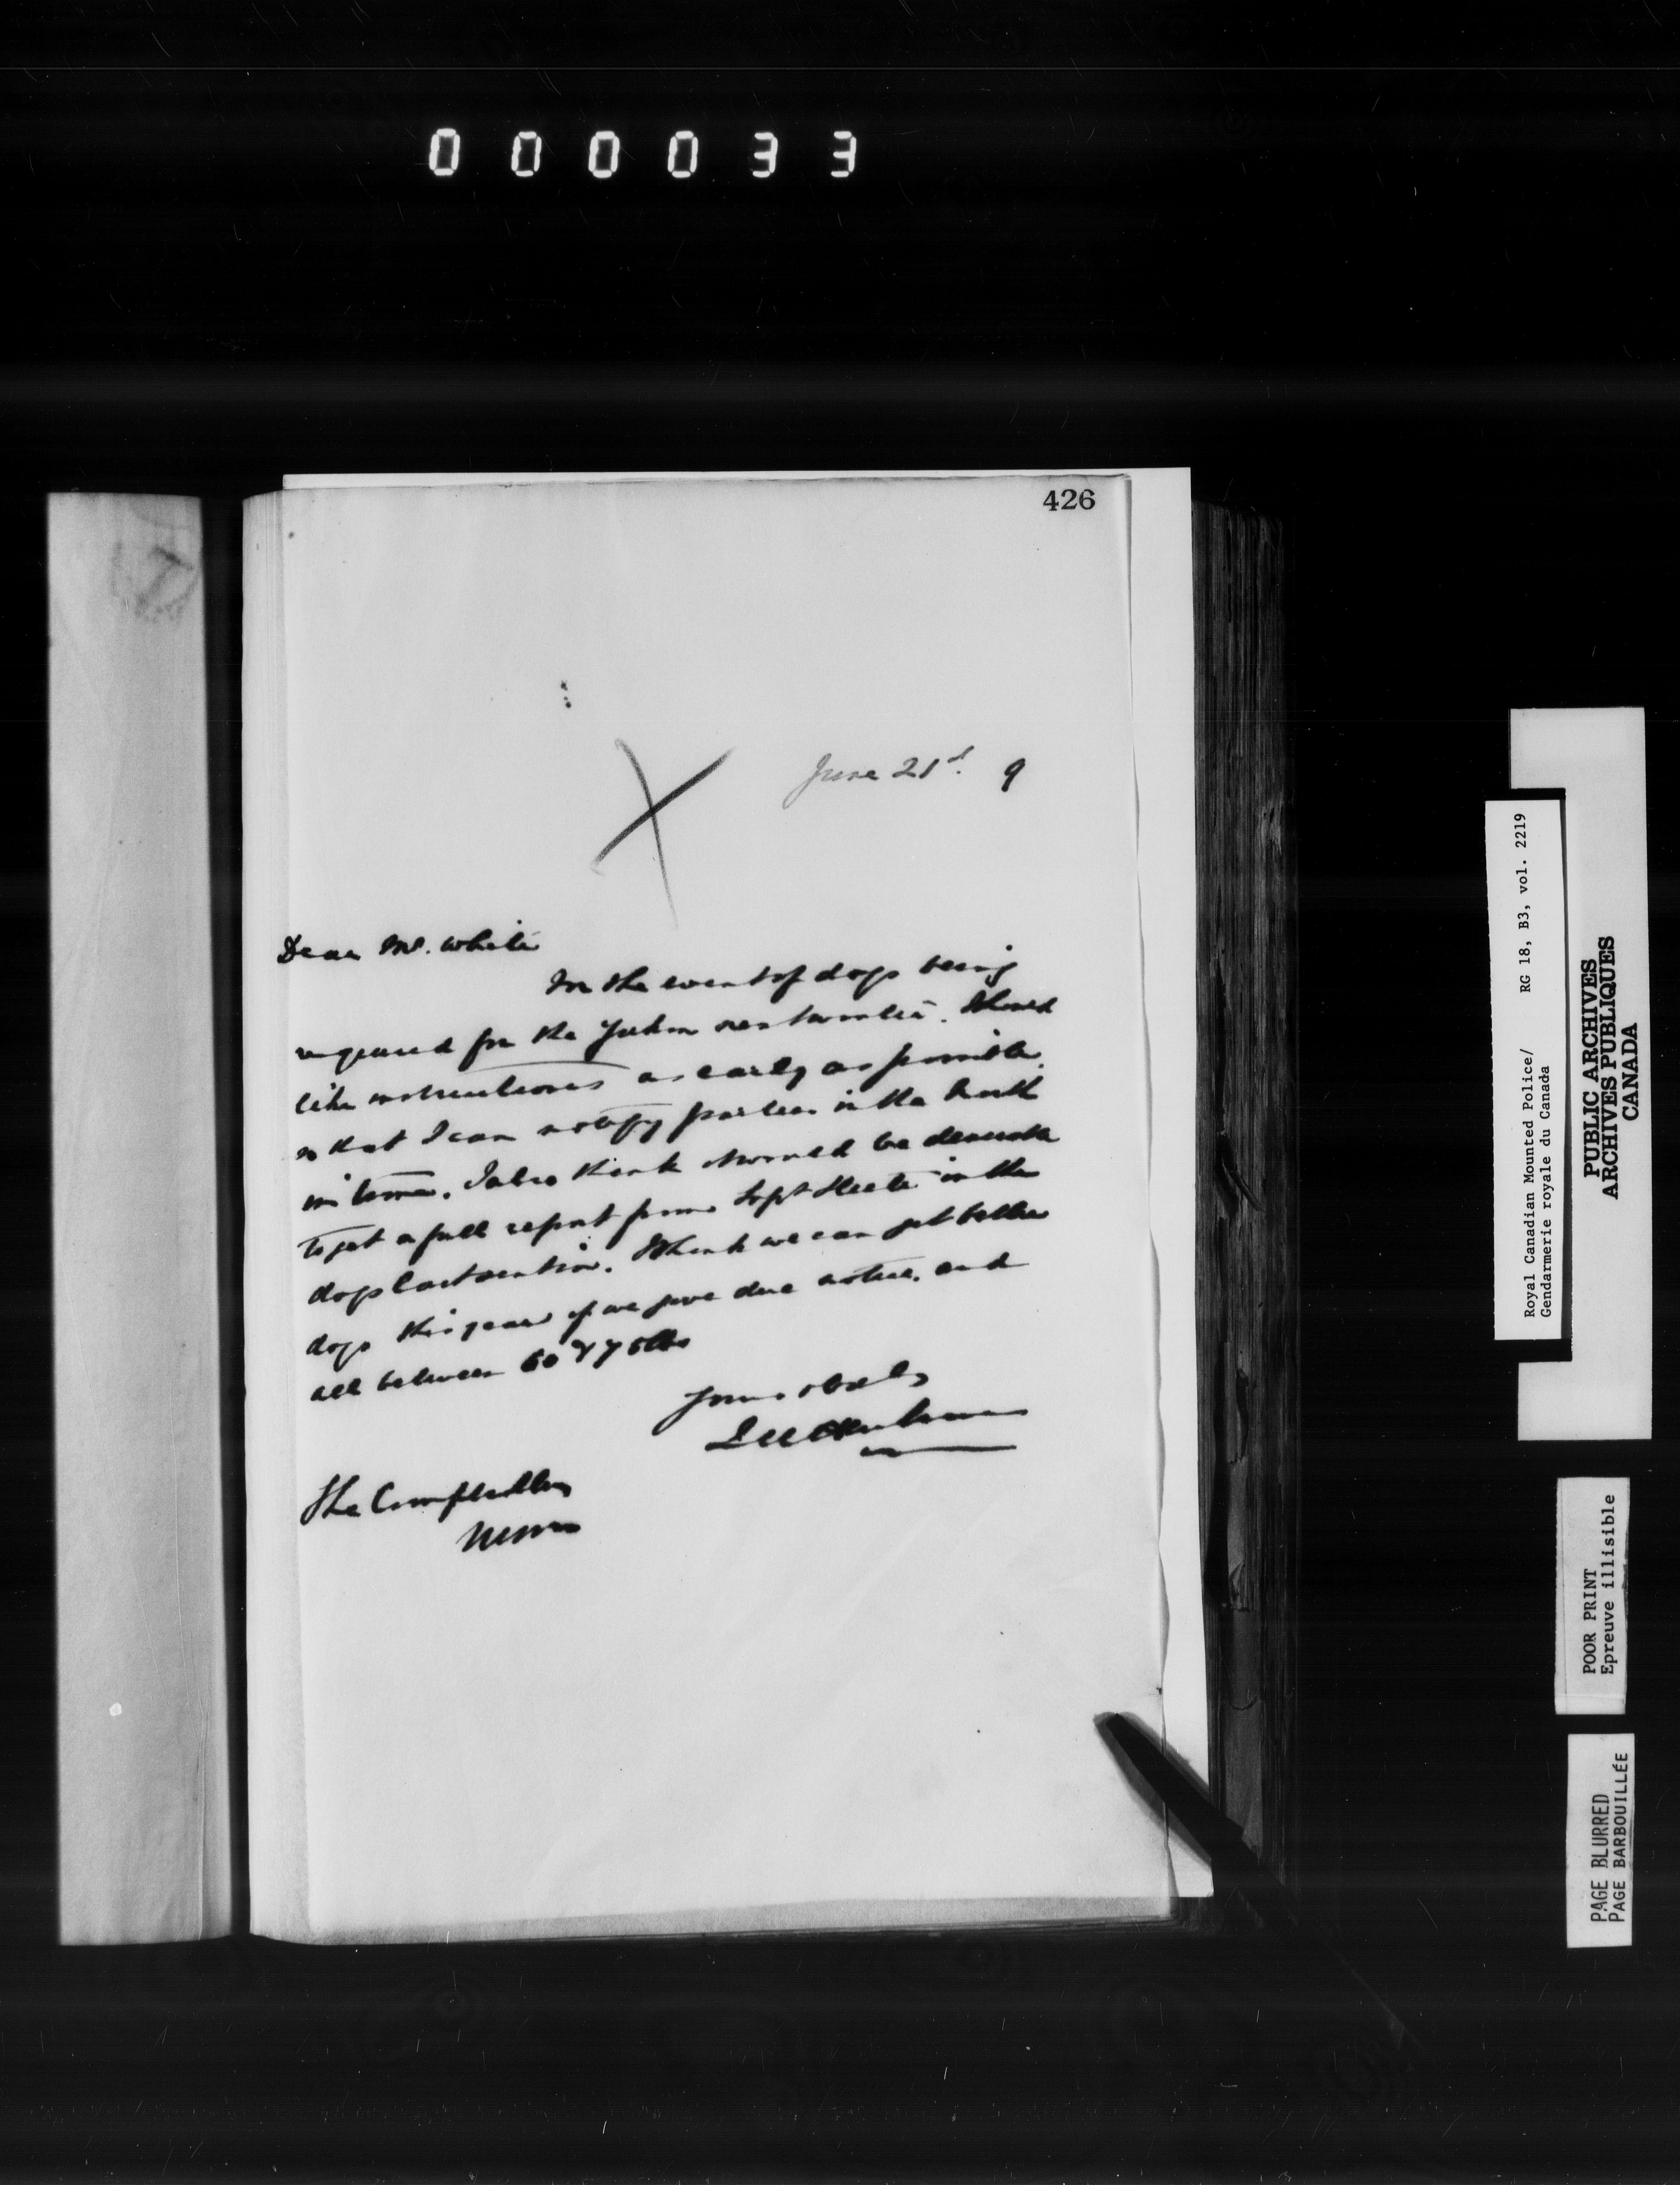 000033
426
June 21st. 9
Dear Mr. White
In the event of dogs being
required for the Yukon next winter. I should
like instructions as early as possible.
so that I can notify parties in the North
in time. I also think it would be desirable
to get a full report from Supt Steele in the
dogs last sent in. I think we can get better
dogs this year if we give due notice. and
all between 60 & 75 lbs
Yours truly
The Comptroller
NWMP
Royal Canadian Mounted Police/ RG 18, B3, vol. 2219
Gendarmerie royale du Canada
PUBLIC ARCHIVES
ARCHIVES PUBLIQUES
CANADA
POOR PRINT
Epreuve illisible
PAGE BLURRED
PAGE BARBOUILLÉE